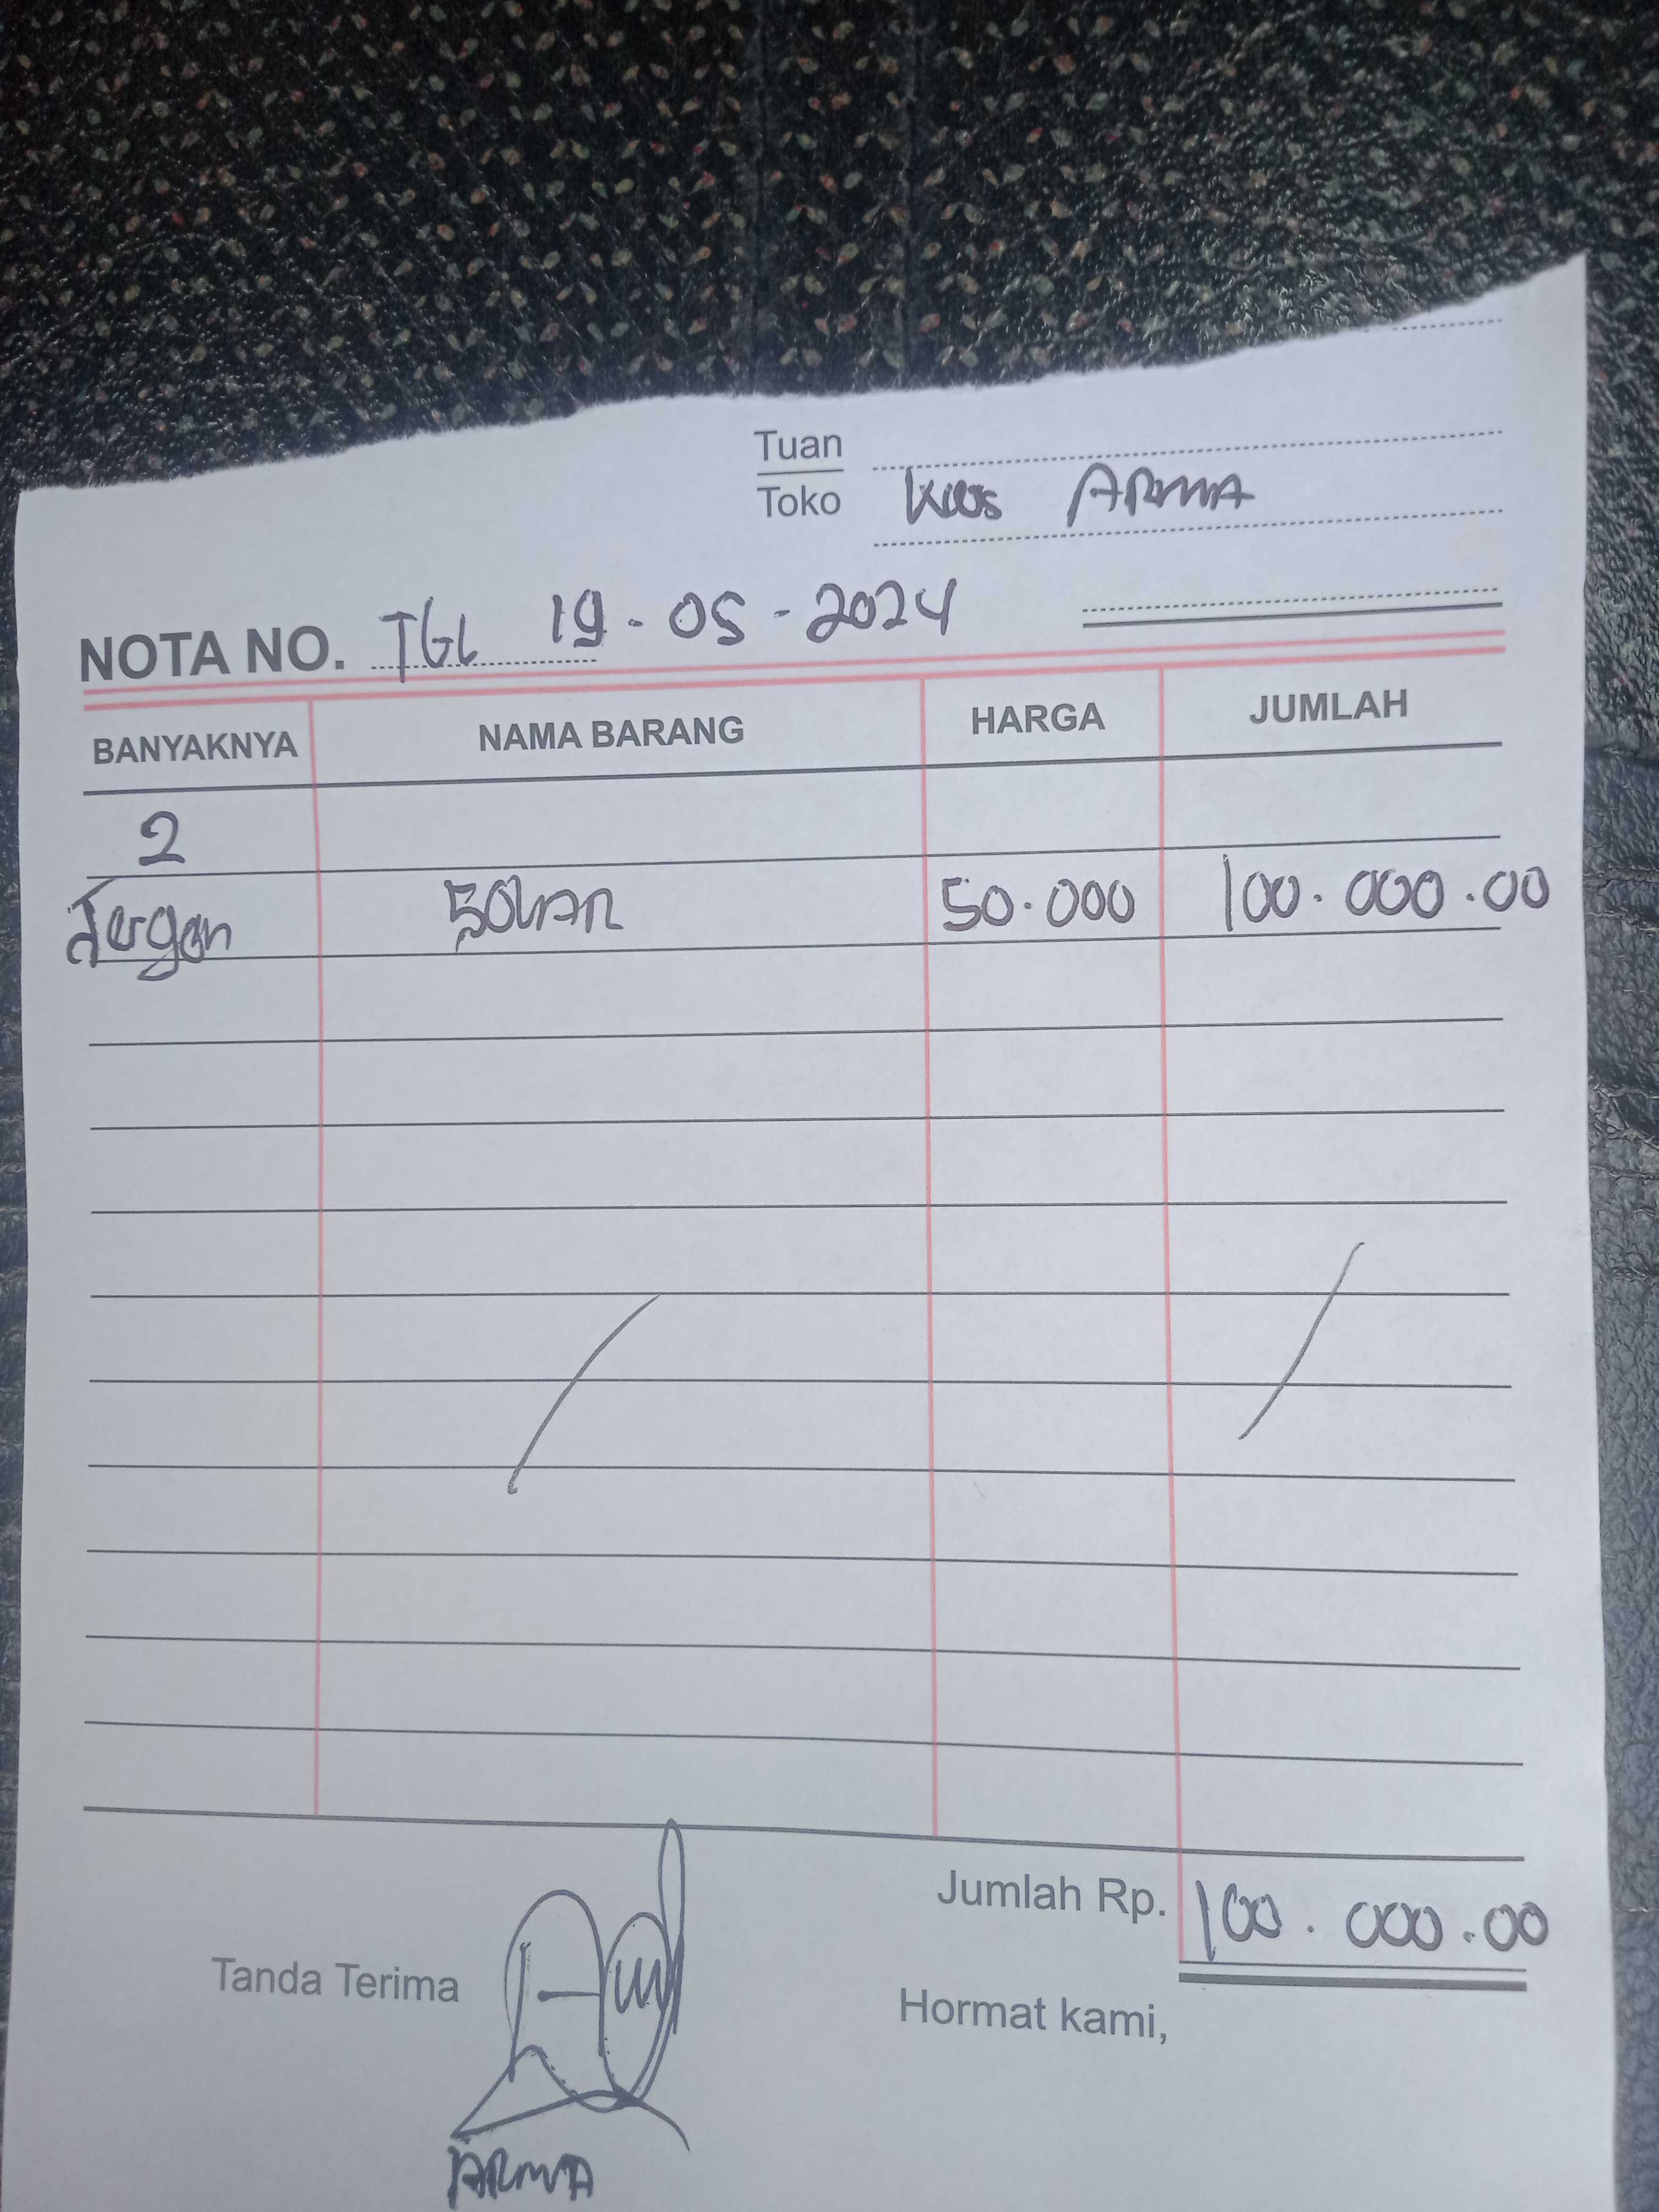 Tuan
Toko Kios ARMA
NOTA NO. TGL 19-05-2024
BANYAKNYA NAMA BARANG HARGA JUMLAH
2
Jergen SOLAR 50.000 100.000.00
Jumlah Rp. 100.000.00
Tanda Terima
Hormat kami,
ARMA